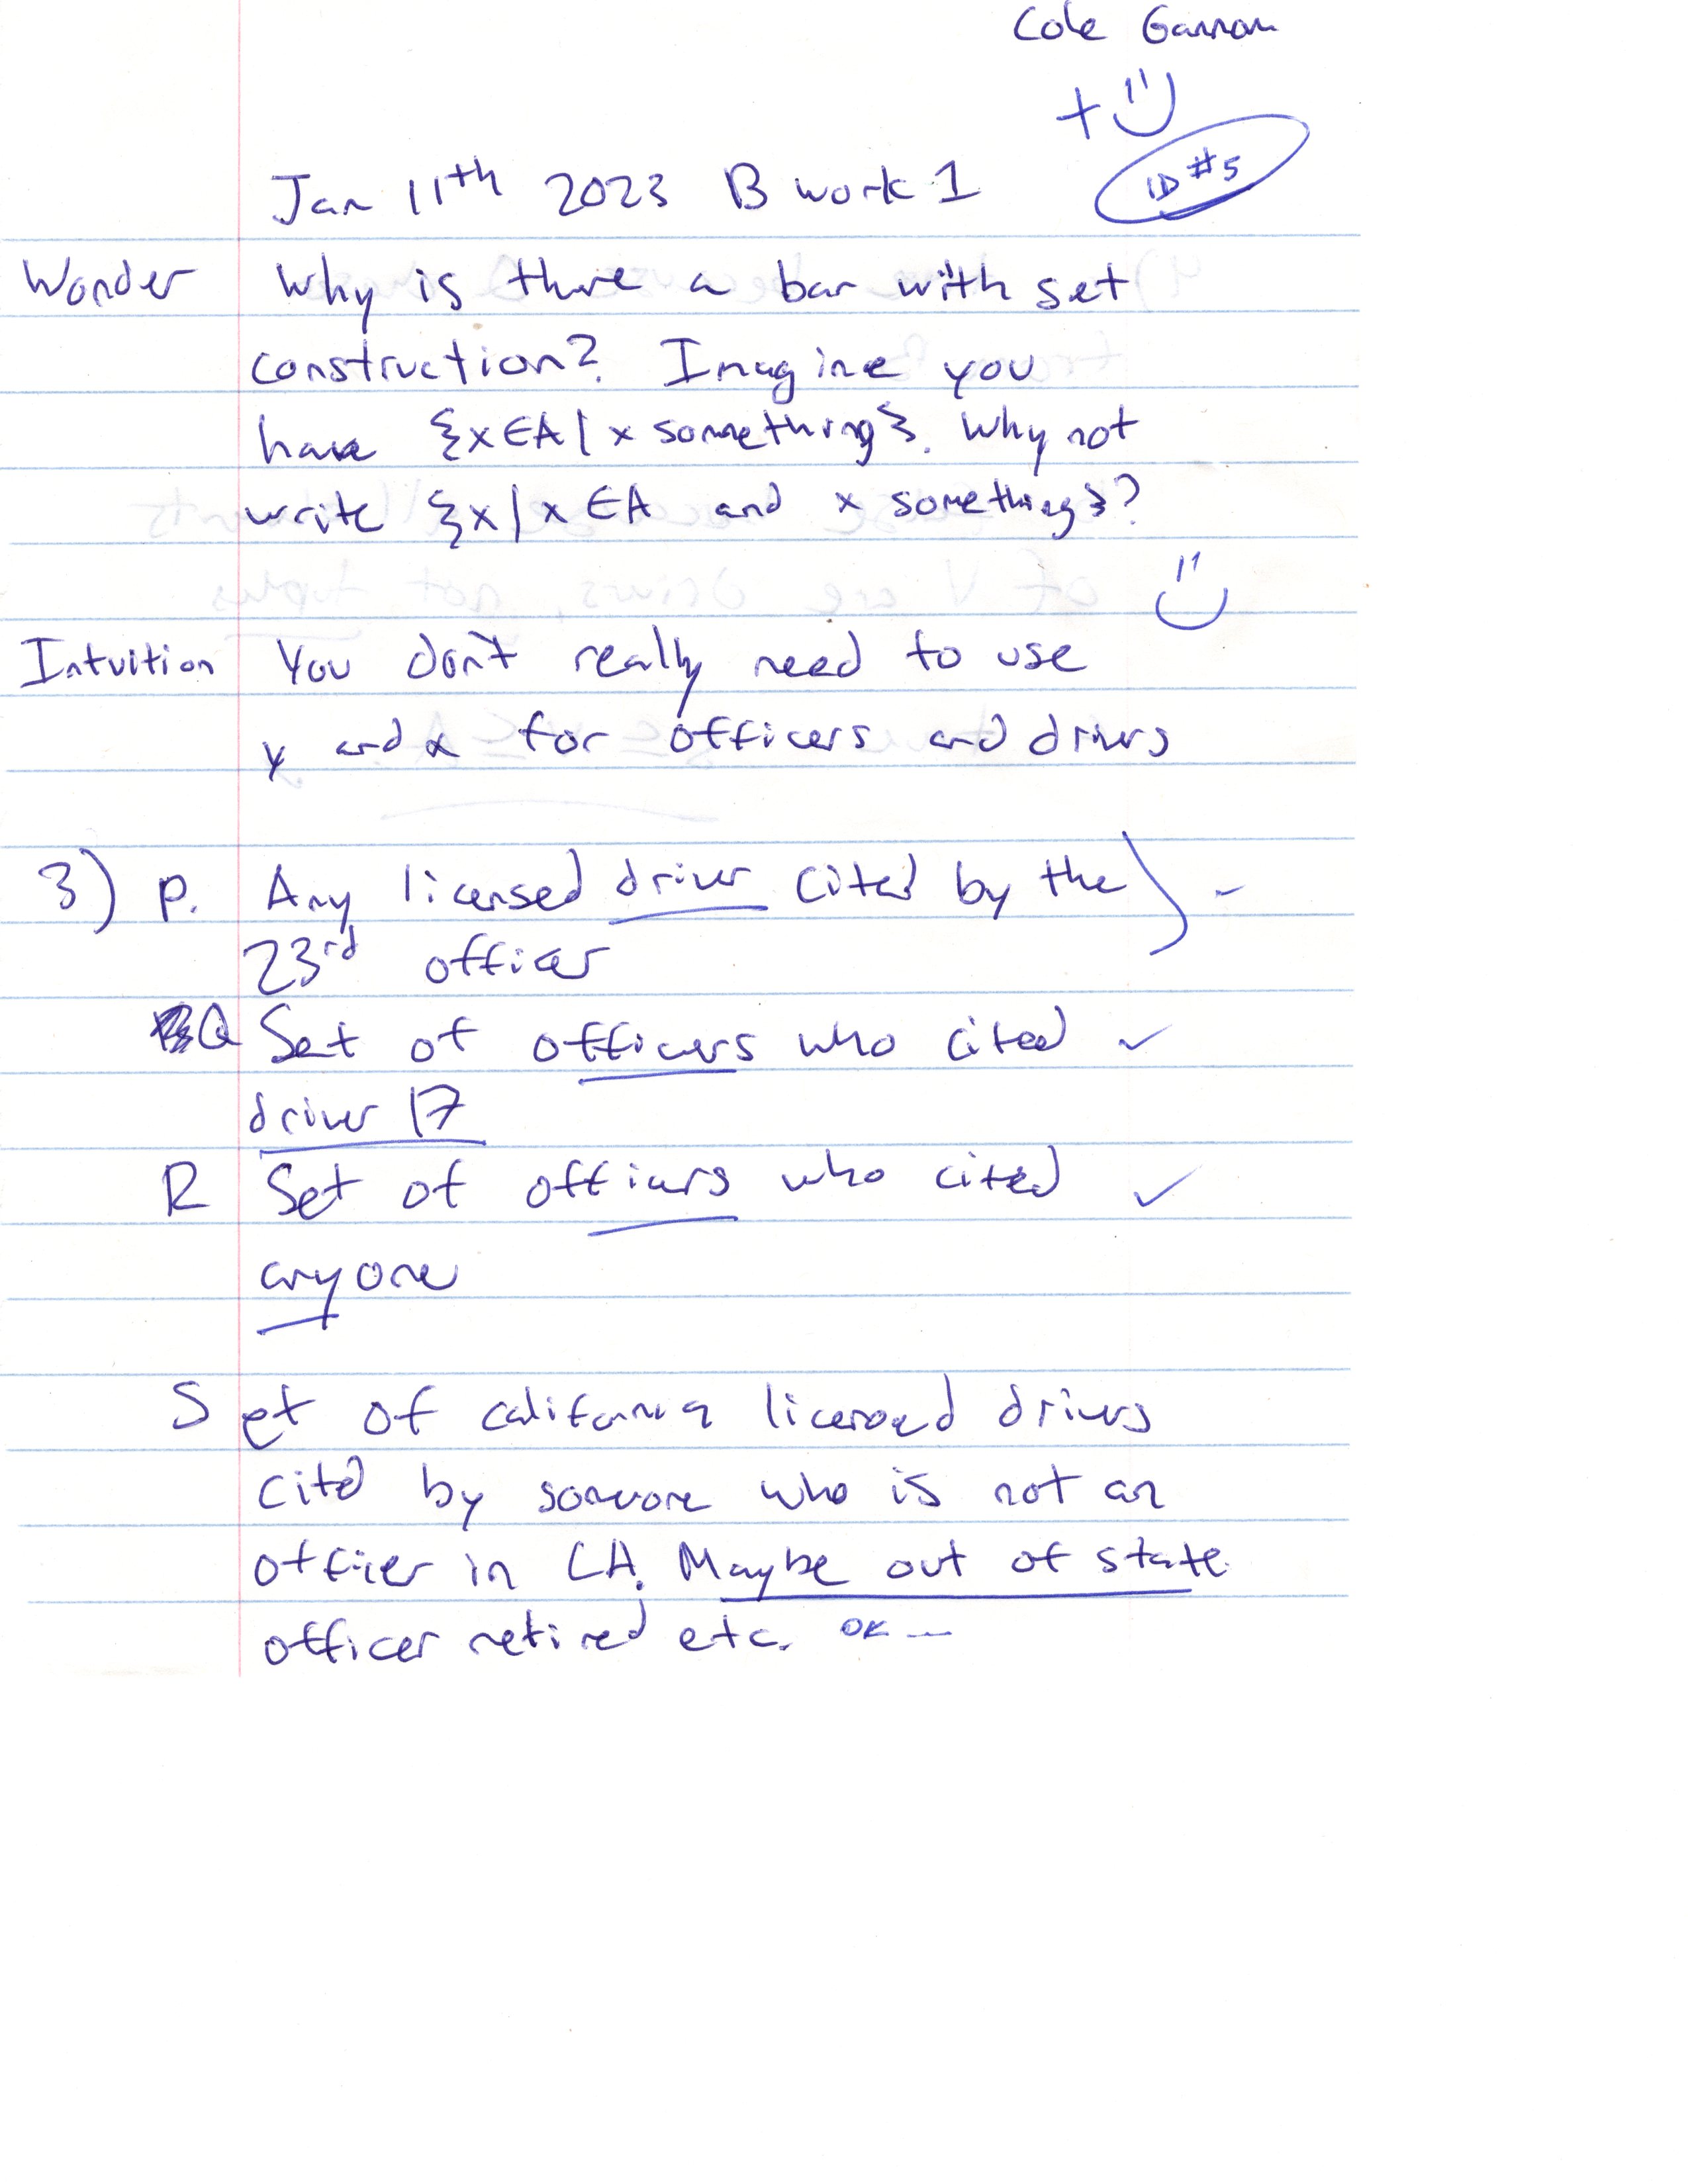 Cole Gannon
+
ID #5
Jan 11th 2023 B work 1
Wonder Why is there a bar with set
construction? Imagine you
have {x∈A | x something}. Why not
write {x | x ∈A and x something}?
Intuition You don't really need to use
y and x for officers and drivers
3) P. Any licensed driver cited by the
23rd officer
Q Set of officers who cited ✓
driver 17
R Set of officers who cited ✓
anyone
Set of california licensed drivers
cited by someone who is not an
officer in CA. Maybe out of state
officer retired etc. OK ---